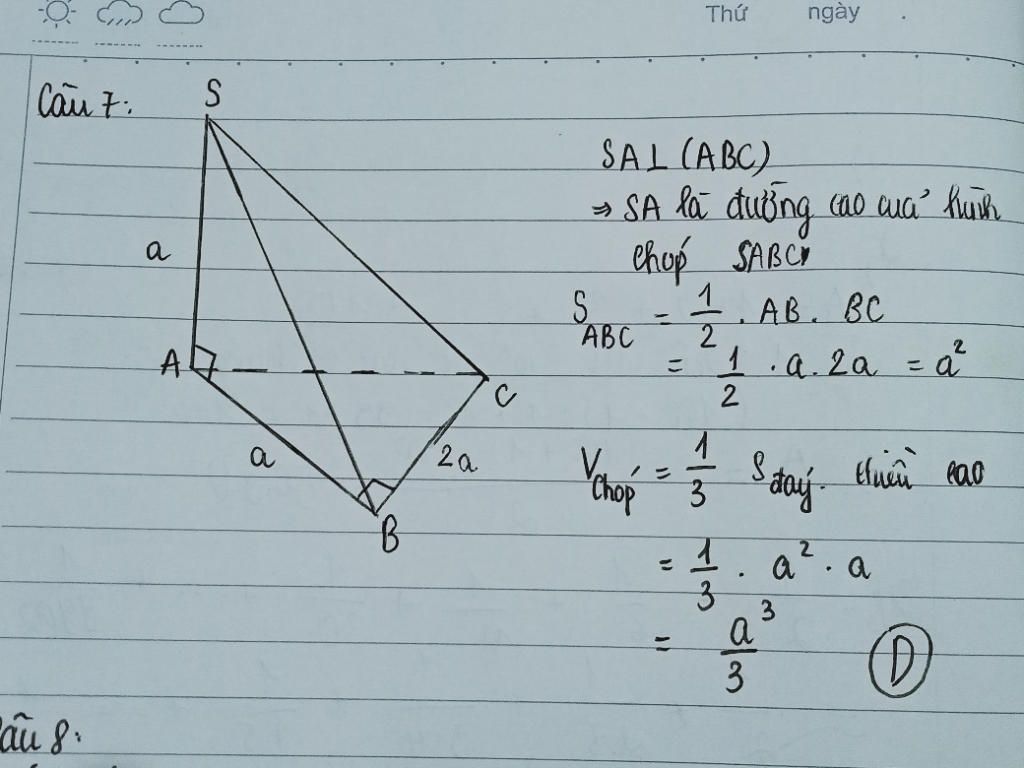 Thứ ngày .
Câu 7:
S
SA⊥(ABC)
⇒ SA là đường cao của hình
chóp SABC
a
S_ABC = 1/2 . AB . BC
= 1/2 . a . 2a = a²
A
C
a
2a
V_chóp = 1/3 S_đáy . chiều cao
B
= 1/3 . a² . a
= a³/3
D
Câu 8: